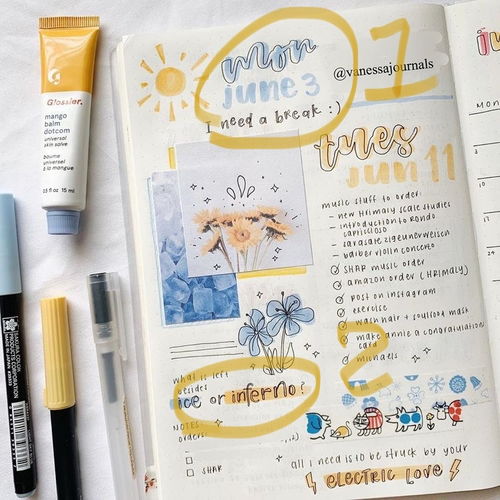 Glossier.
mango
balm
dotcom
universal
skin salve
baume
universel
à la mangue
0.5 fl oz 15 ml
SAKURA COLOR
PRODUCTS CORP.
mon
june 3
I need a break :)
1
@vanessajournals
tues
jun 11
music stuff to order:
- new Hrimaly scale studies
- introduction to rondo
capriccioso
- sarasate zigeunerweisen
- barber violin concerto
SHAR music order
amazon order (HRIMALY)
post on instagram
exercise
wash hair + soulfora mask
make annie a congratulation
card
michaels
2
what is left
besides
ice or inferno?
NOTES
orders:
SHAR
all i need is to be struck by your
electric love
MON
3
10
17
24